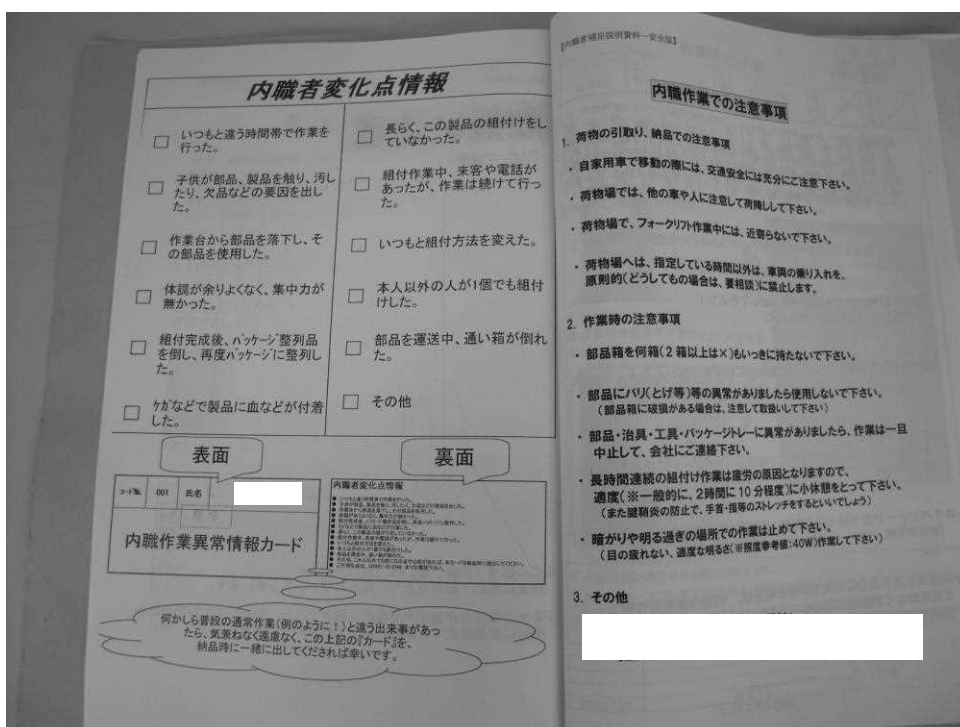 内職者変化点情報
□ いつもと違う時間帯で作業を
行った。
□ 子供が部品、製品を触り、汚し
たり、欠品などの要因を出し
た。
□ 作業台から部品を落下し、そ
の部品を使用した。
□ 体調が余りよくなく、集中力が
無かった。
□ 組付完成後、パッケージ整列品
を倒し、再度パッケージに整列し
た。
□ ケガなどで製品に血などが付着
した。
□ 長らく、この製品の組付けをし
ていなかった。
□ 組付作業中、来客や電話が
あったが、作業は続けて行っ
た。
□ いつもと組付方法を変えた。
□ 本人以外の人が1個でも組付
けした。
□ 部品を運送中、通い箱が倒れ
た。
□ その他
表面
コードNo. 001 氏名
内職作業異常情報カード
裏面
内職者変化点情報
何かしら普段の通常作業(例のように!)と違う出来事があっ
たら、気兼ねなく遠慮なく、この上記の『カード』を、
納品時に一緒に出してくだされば幸いです。
【内職者補足説明資料ー安全版】
内職作業での注意事項
1. 荷物の引取り、納品での注意事項
・自家用車で移動の際には、交通安全には充分にご注意下さい。
・荷物場では、他の車や人に注意して荷降しして下さい。
・荷物場で、フォークリフト作業中には、近寄らないで下さい。
・荷物場へは、指定している時間以外は、車両の乗り入れを、
原則的(どうしてもの場合は、要相談)に禁止します。
2. 作業時の注意事項
・部品箱を何箱(2箱以上は×)もいっきに持たないで下さい。
・部品にバリ(とげ等)等の異常がありましたら使用しないで下さい。
(部品箱に破損がある場合は、注意して取扱いして下さい)
・部品・治具・工具・パッケージトレーに異常がありましたら、作業は一旦
中止して、会社にご連絡下さい。
・長時間連続の組付け作業は疲労の原因となりますので、
適度(※一般的に、2時間に10分程度)に小休憩をとって下さい。
(また腱鞘炎の防止で、手首・指等のストレッチをするといいでしょう)
・暗がりや明る過ぎの場所での作業は止めて下さい。
(目の疲れない、適度な明るさ(※照度参考値:40W)作業して下さい)
3. その他